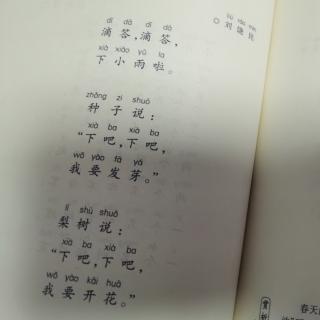 dī dā dī dā
滴答，滴答，
xià xiǎo yǔ la
下小雨啦。
zhǒng zi shuō
种子说：
xià ba xià ba
“下吧，下吧，
wǒ yào fā yá
我要发芽。”
lí shù shuō
梨树说：
xià ba xià ba
“下吧，下吧，
wǒ yào kāi huā
我要开花。”
liú ráo mín
◎刘饶民
赏析
春天